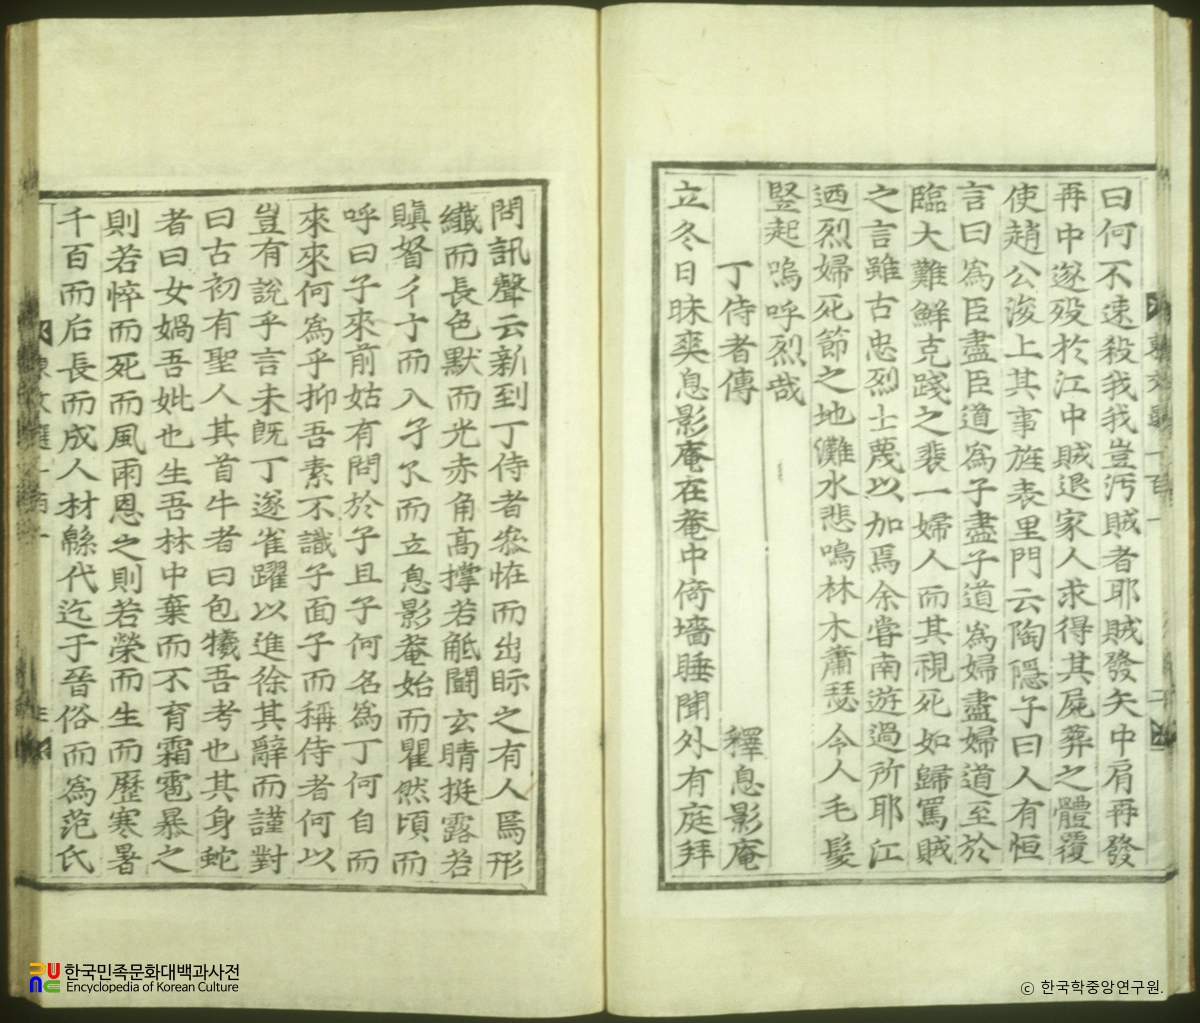 曰何不速殺我我豈汚賊者耶賊發矢中肩再發
再中遂歿於江中賊退家人求得其屍葬之體覆
使趙公浚上其事旌表里門云陶隱子曰人有恒
言曰爲臣盡臣道爲子盡子道爲婦盡婦道至於
臨大難鮮克踐之裴一婦人而其視死如歸罵賊
之言雖古忠烈士蔑以加焉余嘗南遊過所耶江
迺烈婦死節之地灘水悲鳴林木蕭瑟令人毛髮
竪起嗚呼烈哉
丁侍者傳
釋息影庵
立冬日昧爽息影庵在菴中倚墻睡聞外有庭拜
問訊聲云新到丁侍者叅恠而出眎之有人焉形
纖而長色默而光赤角高撑若觝鬪玄睛挺露若
瞋督彳亍而入孑孓而立息影菴始而瞿然頃而
呼曰子來前姑有問於子且子何名爲丁何自而
來來何爲乎抑吾素不識子面子而稱侍者何以
豈有說乎言未旣丁遂雀躍以進徐其辭而謹對
曰古初有聖人其首牛者曰包犧吾考也其身蛇
者曰女媧吾妣也生吾林中棄而不育霜雹暴之
則若悴而死而風雨恩之則若榮而生而歷寒暑
千百而后長而成人材緜代迄于晉俗而爲范氏
한국민족문화대백과사전
Encyclopedia of Korean Culture
ⓒ 한국학중앙연구원.